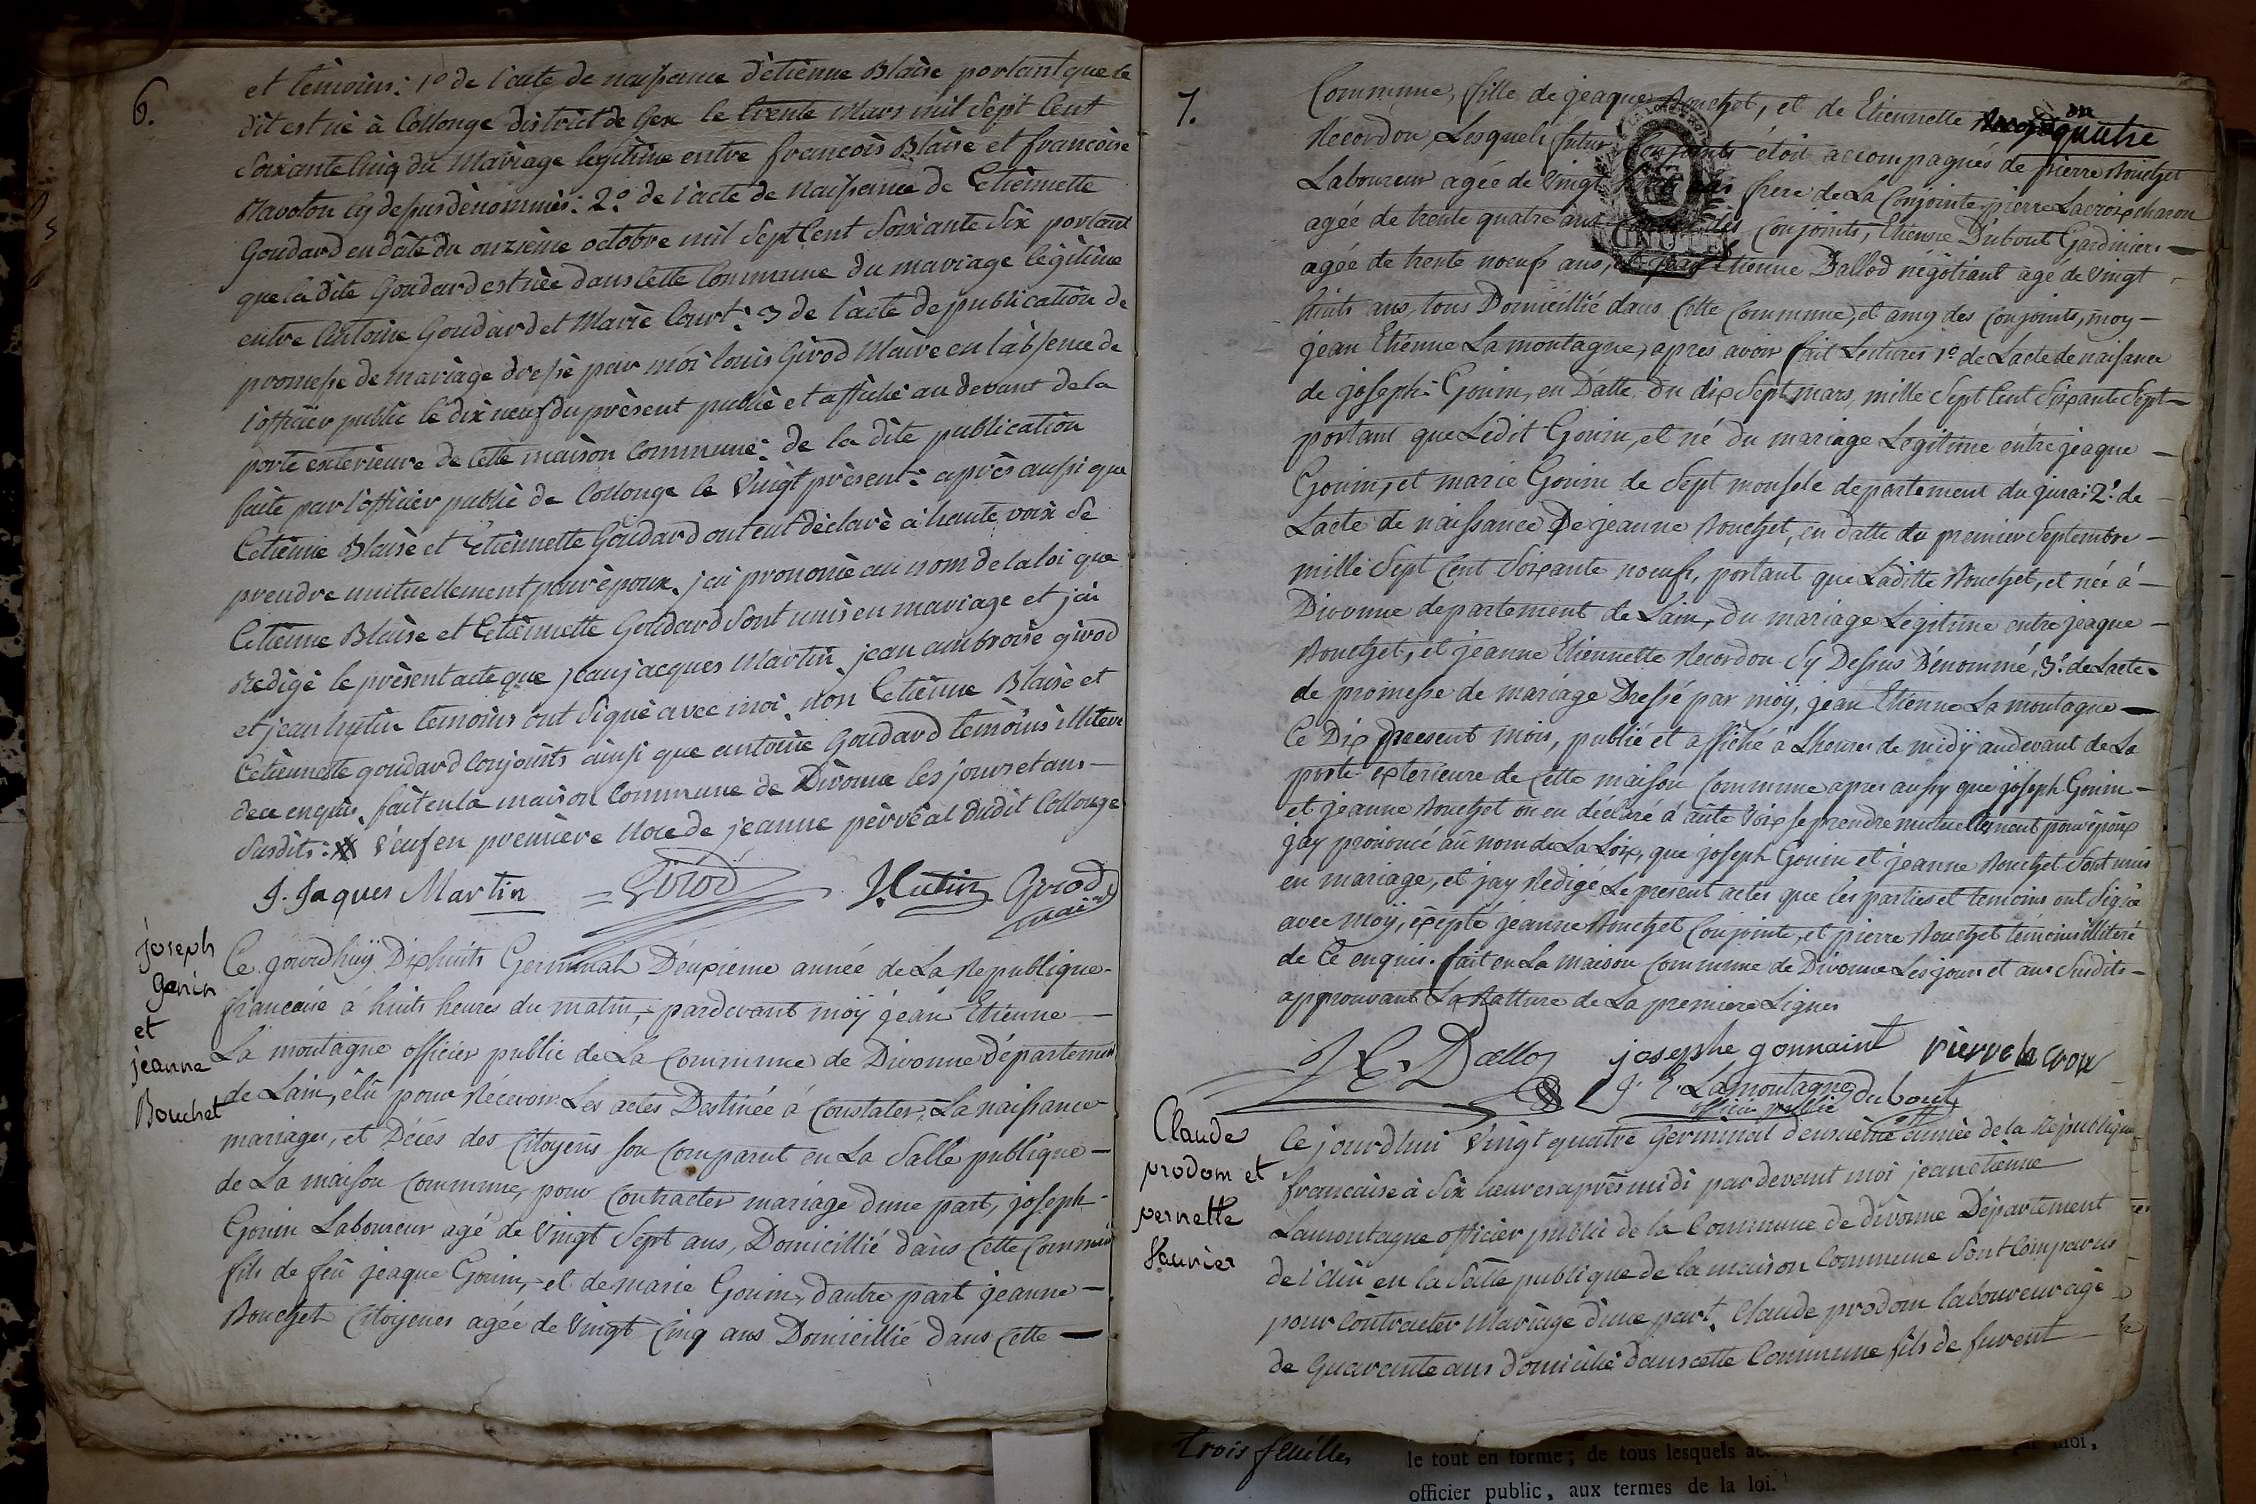 6.
et témoins: 1º de l'acte de naissance d'étienne Blaise portant que le
dit est né à Collonge district de Gex le trente Mars mil Sept Cent
Soixante Cinq du Mariage legitime entre françois Blaise et françoise
Ravoton cy dessus dénommés: 2.º de l'acte de Naissance de Etiennette
Goudard en date du onzième octobre mil Sept Cent Soixante Six portant
que la dite Goudard est née dans Cette Commune du mariage légitime
entre Antoine Goudard et Marie Court: 3 de l'acte de publication de
promesse de mariage dressé par moi louis Girod Maire en l'absence de
l'officier public le dix neuf du présent publié et affiché au devant de la
porte exterieure de Cette maison Commune: de la dite publication
faite par l'officier public de Collonge le Vingt présent: après aussi que
Etienne Blaise et Etiennette Goudard ont eut déclaré à haute voix Se
prendre mutuellement pour époux. j'ai prononcé au nom de la loi que
Etienne Blaise et Etiennette Goudard Sont unis en mariage et j'ai
Redigé le présent acte que jean jacques Martin jean ambroise girod
et jean hutin temoins ont Signé avec moi, non Etienne Blaise et
Etiennette goudard Conjoints ainsi que antoine Goudard temoins illiteré
de ce enquis. fait en la maison Commune de Divonne les jours et ans -
Susdits: Veuf en première Noce de jeanne perréal dudit Collonge
J. Jaques Martin Girod J. Hutin Girod
maire
joseph
Gonin
et
jeanne
Bouchet
Ce jourdhuÿ Dixhuits Germinal Deuxieme année de La Republique
francaise à huits heures du matin, pardevant moÿ jean Etienne
La montagne officier public de La Commune de Divonne Departement
de Lain, élû pour Recevoir Les actes Destinée á Constater, La naissance
mariages, et Décés des Citoyens son Comparut en La Salle publique -
de La maison Commune, pour Contracter mariage dune part, joseph
Gonin Laboureur agé de Vingt Sept ans, Domicillié dans Cette Commune
fils de feû jeaque Gonin, et de marie Gonin, dautre part jeanne -
Bouchet Citoyenes agée de Vingt Cinq ans Domicillié dans Cette -
7.
Commune, fille de jeaque Bouchet, et de Etiennette
quatre
Recordon, Lesquels futur Conjoints étoit accompagnés de pierre Bouchet
Laboureur agée de Vingt frere de La Conjointe, pierre Lacroix charon
agée de trente quatre ans Conjoints, Etienne Dubout Gardinier -
agée de trente noeuf ans, Etienne Dallod négotiant agé de Vingt
huits ans, tous Domicillié dans Cette Commune, et amy des Conjoints, moy -
jean Etienne La montagne, apres avoir fait Lectures 1º de Lacte de naisance
de joseph Gonin, en Datte du dix Sept mars, mille Sept Cent Soixante Sept -
portant que Ledit Gonin, et né du mariage Legitime entre jeaque -
Gonin, et marie Gonin de Sept monsele departement du jura: 2º. de -
Lacte de naissance De jeanne Bouchet, en datte du premier Septembre -
mille Sept Cent Soixante noeufs, portant que Laditte Bouchet, et née à -
Divonne departement de Lain, du mariage Legitime entre jeaque -
Bouchet, et jeanne Etiennette Recordon Cy Dessus Dénommé, 3º. de Lacte
de promesse de mariage Dressé par moy, jean Etienne La montagne -
Ce Dix present mois, publié et affiché à Lheures de midÿ audevant de La
porte exterieure de Cette maison Commune apres aussy que joseph Gonin -
et jeanne Bouchet on eu declaré á aute Voix se prendre mutuellement pour époux
jay prononcé au nom de La Loix, que joseph Gonin et jeanne Bouchet Sont unis
en mariage, et jay Redigé Le present actes que les parties et temoins ont Signé
avec moÿ, éxepté jeanne Bouchet Conjointe, et pierre Bouchet témoins illiteré
de Ce enquis. fait en La maison Commune de Divonne Les jours et ans Susdits -
approuvant La Ratture de La premiere Lignes
J. E. Dallod josephe gonnaint pierre la croix
J. E. Lamontagne dubout
officier public
Claude
prodom et
pernette
Vaurier
Ce jourdhui Vingt quatre Germinal deuxième année de la République
française à Six heures après midi par devant moi jean étienne
Lamontagne officier public de la Commune de divonne Département
de l'Ain en la Salle publique de la maison Commune Sont Comparus
pour Contracter Mariage d'une part, Claude prodom laboureur agé
de Quarante ans domicilié dans cette Commune fils de furent
trois feuilles
le tout en forme; de tous lesquels moi,
officier public, aux termes de la loi.